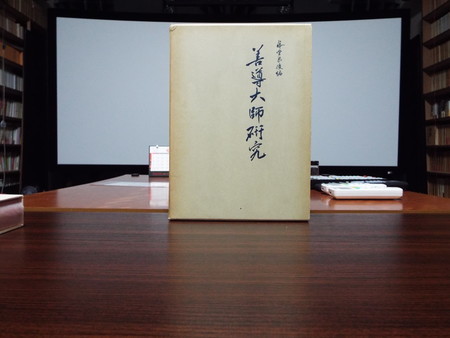 藤堂恭俊編
善導大師研究